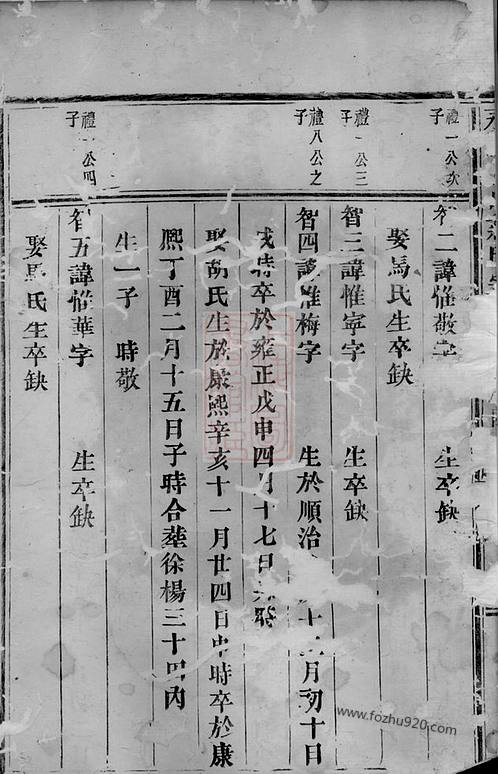 禮一公次子
智二諱惟敬字 生卒缺
娶馬氏生卒缺
禮一公三子
智三諱惟寧字 生卒缺
禮八公之子
智四諱惟梅字 生於順治 十二月初十日
戌時卒於雍正戊申四月十七日 時
娶胡氏生於康熙辛亥十一月廿四日申時卒於康
熙丁酉二月十五日子時合塟徐楊三十四內
生一子 時敬
禮一公四子
智五諱惟華字 生卒缺
娶馬氏生卒缺
www.fozhu920.com